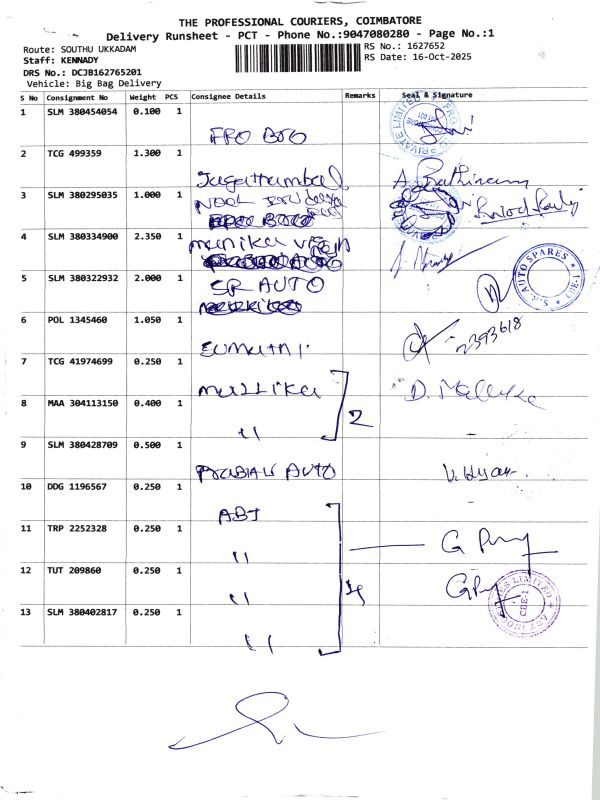 THE PROFESSIONAL COURIERS, COIMBATORE
Delivery Runsheet - PCT - Phone No.:9047080280 - Page No.:1
Route: SOUTHU UKKADAM
RS No.: 1627652
Staff: KENNADY
RS Date: 16-Oct-2025
DRS No.: DCJB162765201
Vehicle: Big Bag Delivery
S No Consignment No Weight PCS Consignee Details Remarks Seal & Signature
1 SLM 380454054 0.100 1
FRO BTO
2 TCG 499359 1.300 1
Jagathambal
3 SLM 380295035 1.000 1
NOOL
4 SLM 380334900 2.350 1
manika
5 SLM 380322932 2.000 1
SR AUTO
AUTO SPARES
CBE-1
6 POL 1345460 1.050 1
SUMATHI
2393618
7 TCG 41974699 0.250 1
mallika
D. Mallika
8 MAA 304113150 0.400 1
" 2
9 SLM 380428709 0.500 1
AUTO
10 DDG 1196567 0.250 1
ABT
11 TRP 2252328 0.250 1
"
12 TUT 209860 0.250 1
" 4
LIMITED
CBE-1
13 SLM 380402817 0.250 1
"